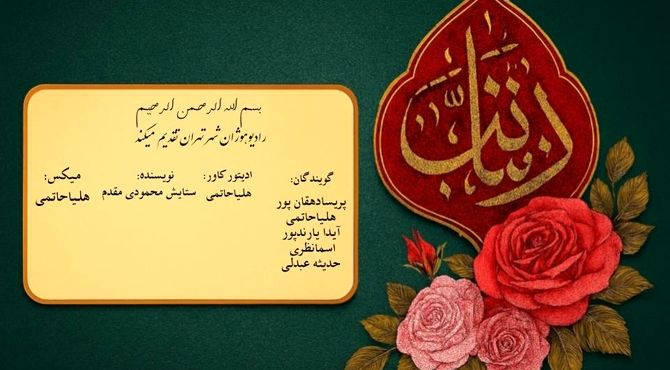 بسم الله الرحمن الرحیم
رادیو هوژان شهر تهران تقدیم میکند
گویندگان:
پریسادهقان پور
هلیاحاتمی
آیدا یارندپور
اسمانظری
حدیثه عبدلی
ادیتور کاور:
هلیاحاتمی
نویسنده:
ستایش محمودی مقدم
میکس:
هلیاحاتمی
زینب